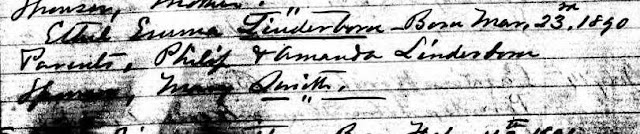 Sponsor, Mother. "
Ethel Emma Linderborn Born Mar. 23rd, 1890
Parents, Philip & Amanda Linderborn
Sponsor, Mary Smith.
Born Feb. 11th